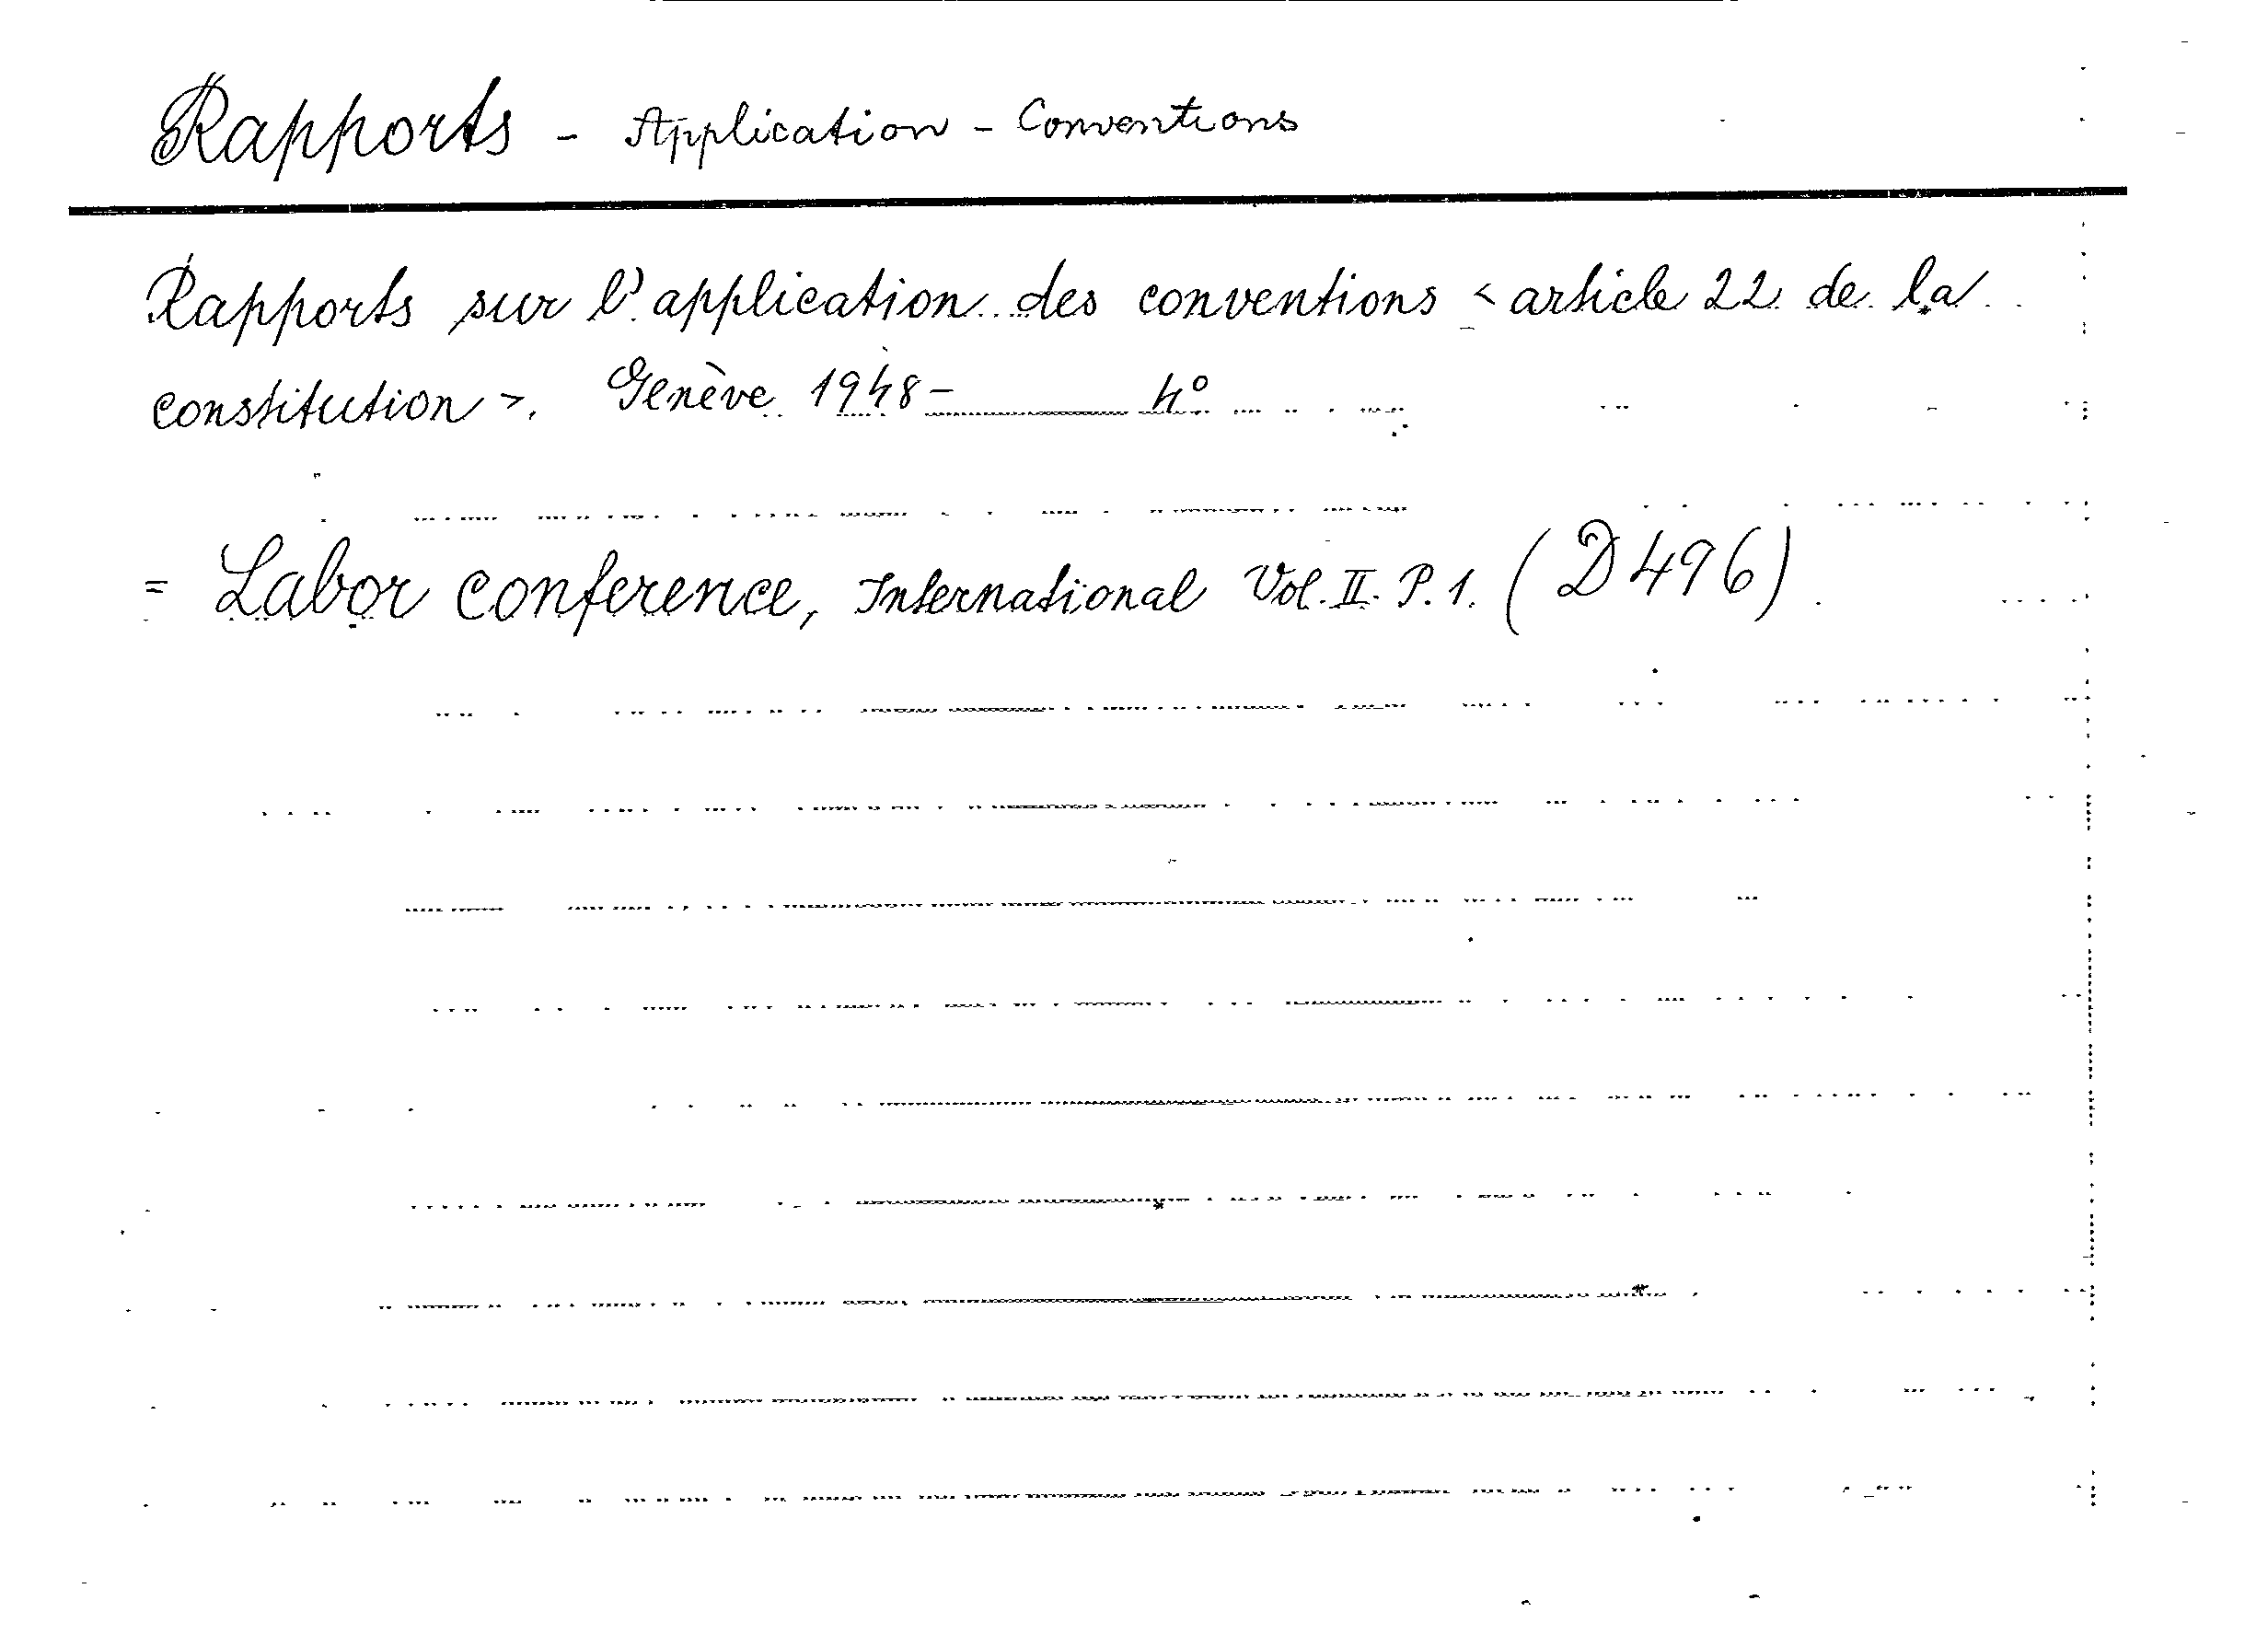 Rapports - Application - Conventions
Rapports sur l'application des conventions < article 22 de la
constitution >. Genève 1948- 4°
= Labor conference, International Vol. II. P. 1. (D 496)